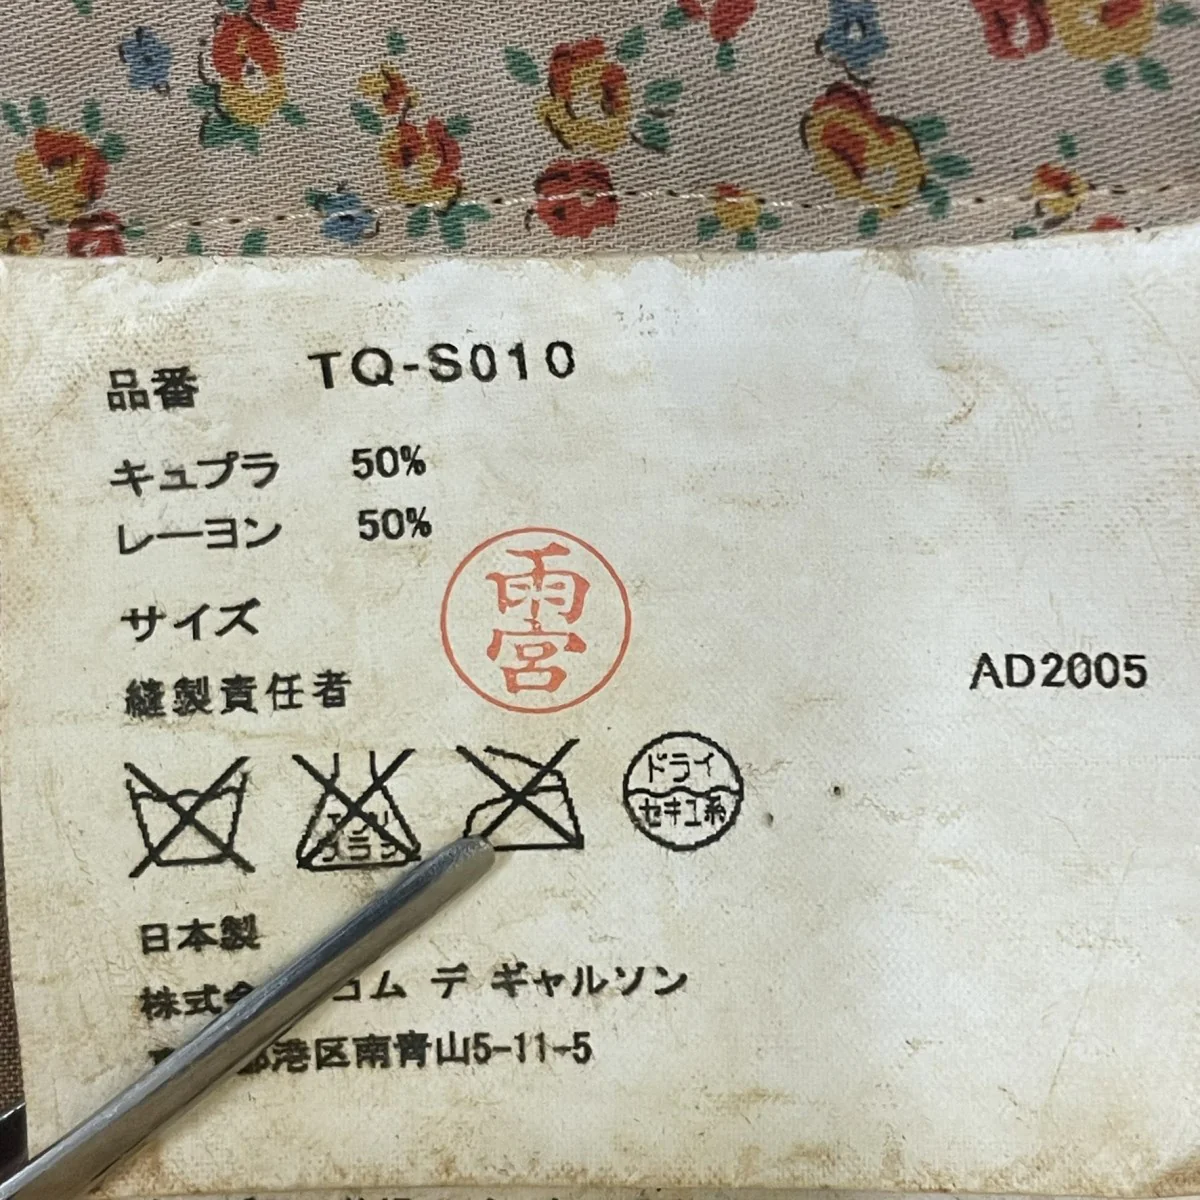 品番 TQ-S010
キュプラ 50%
レーヨン 50%
サイズ
雨宮
縫製責任者
AD2005
エンソ
サラシ
ドライ
セキユ系
日本製
株式会 コム デ ギャルソン
都港区南青山5-11-5